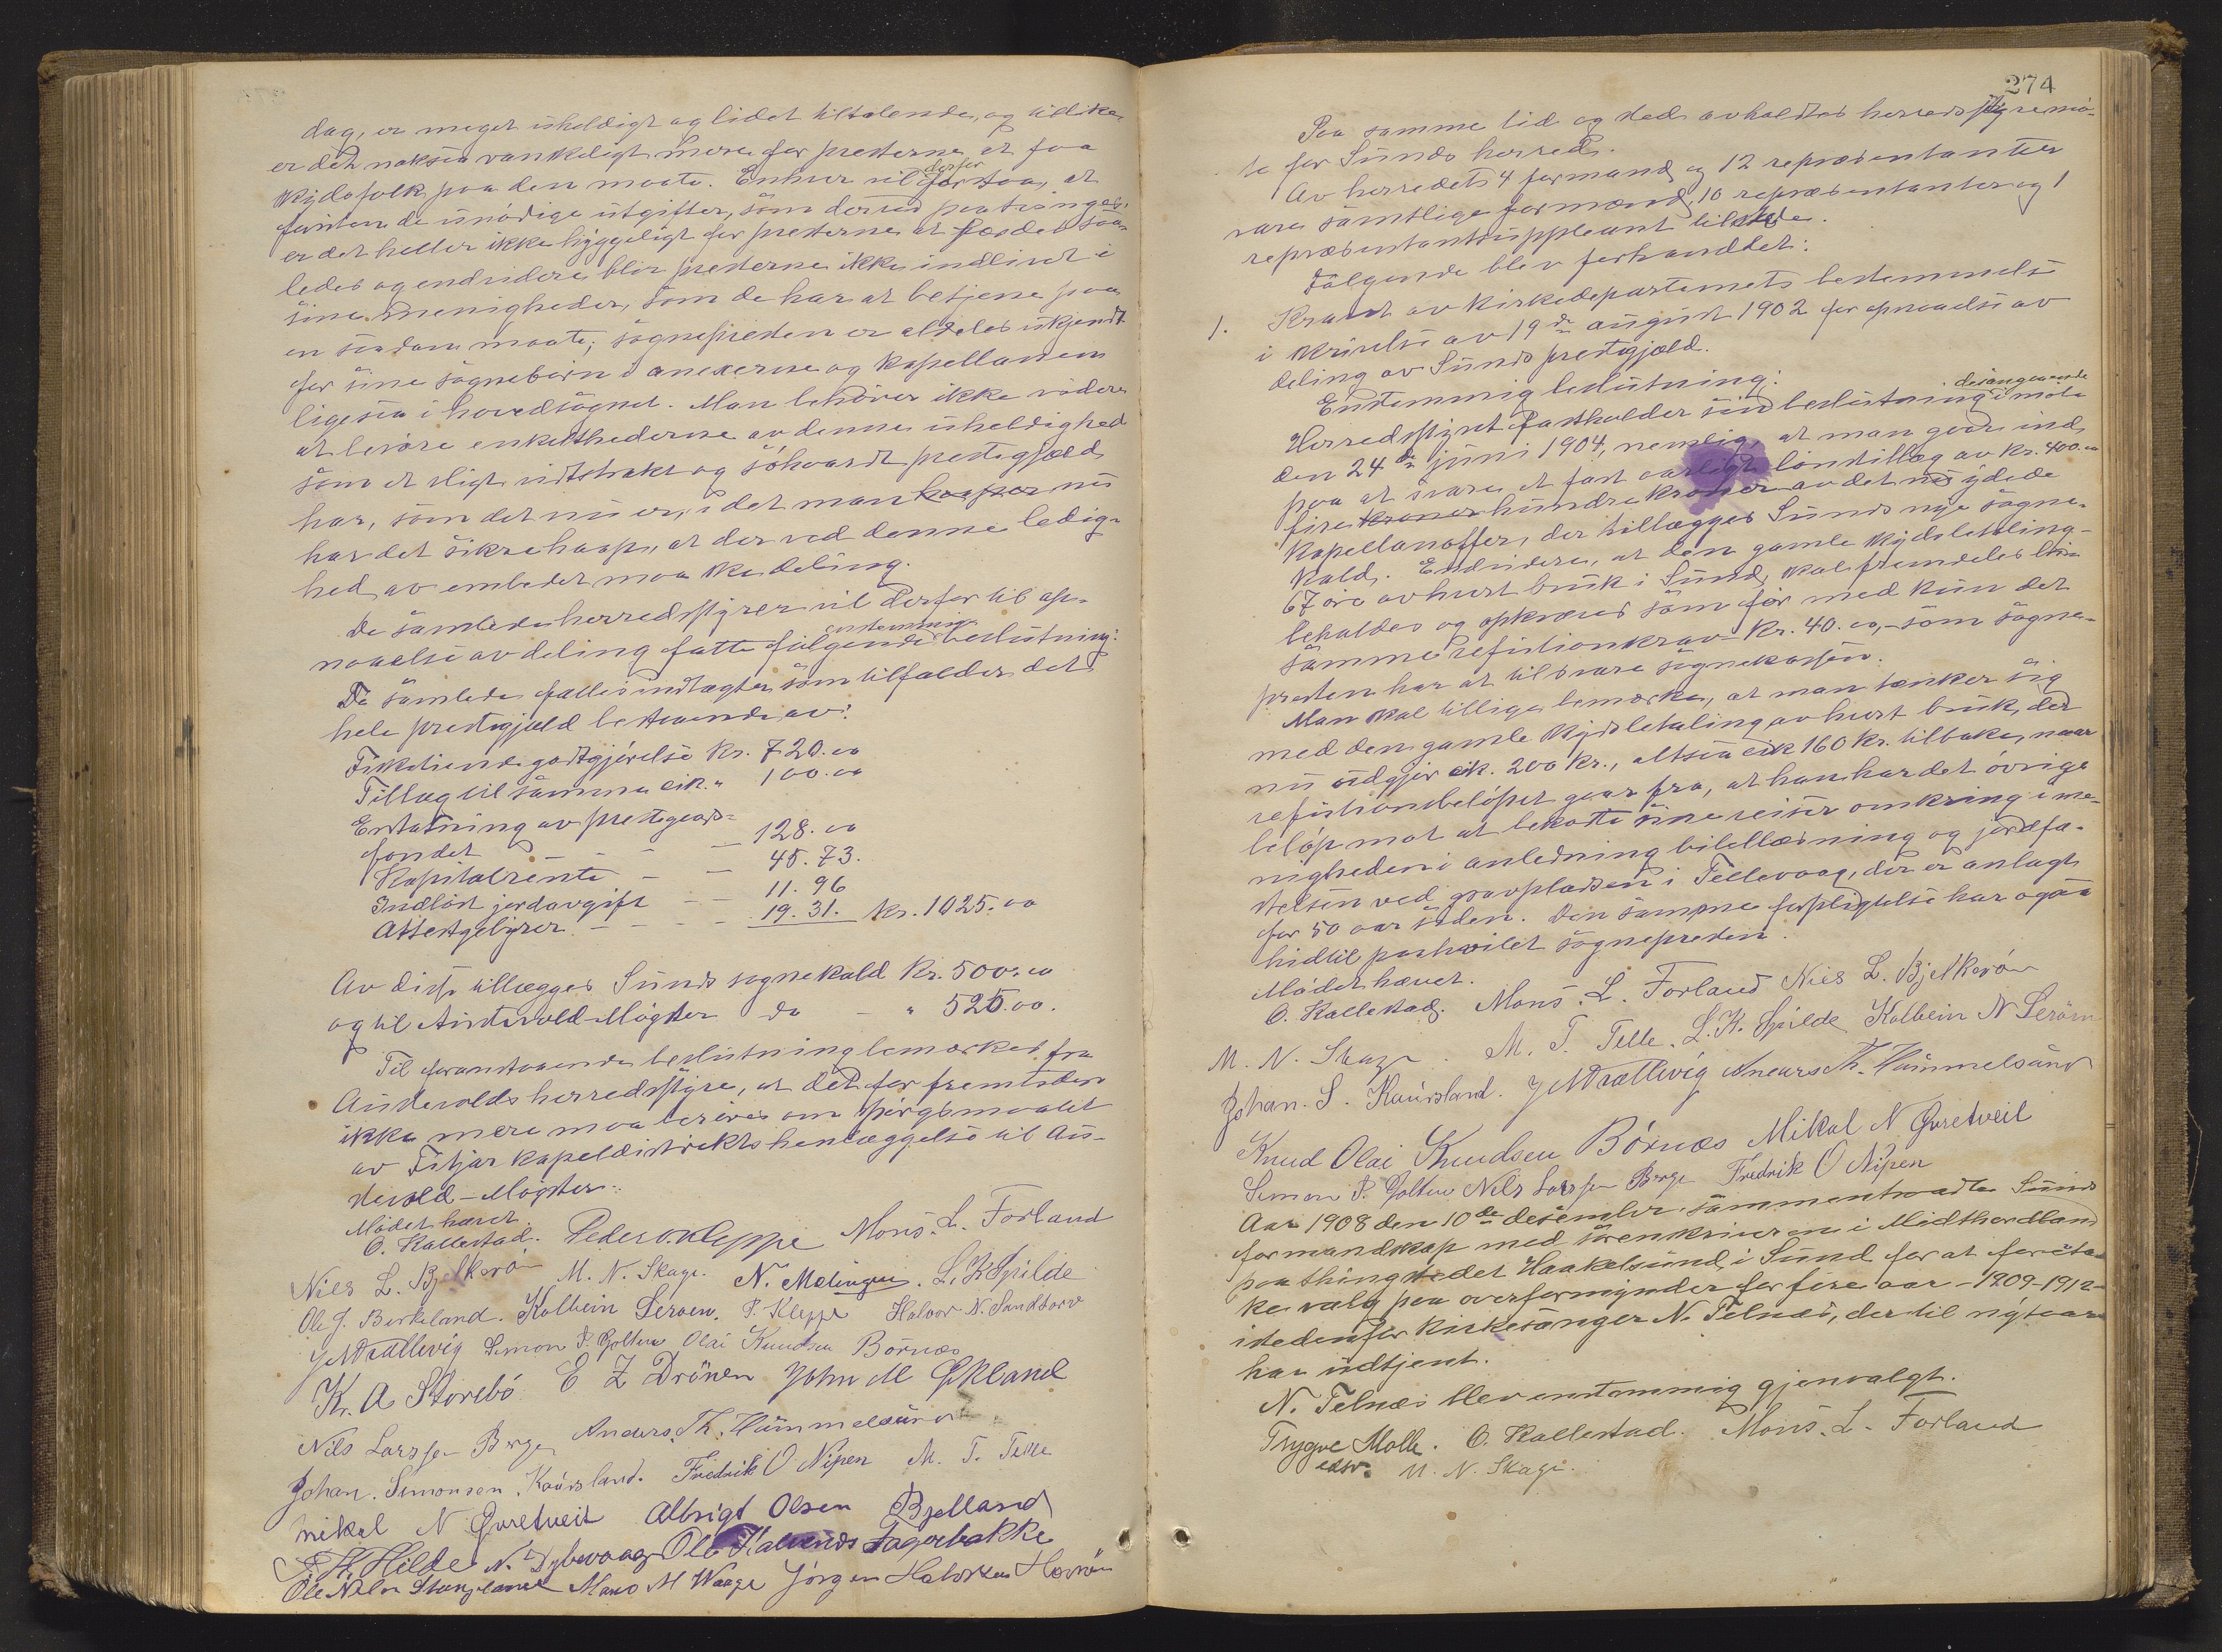 dag, er meget uheldigt og lidet tiltalende, og tillike
er det noksaa vanskeligt mere for presterne at faa
skydsfolk paa den maate. Enhver vil derfor forstaa, at
foruten de unødige utgifter, som derved paatrænges,
er det heller ikke hyggeligt for presterne at færdes saa-
ledes og endvidere blir presterne ikke indlivet i
sine menigheder, som de har at betjene paa
en saadan maate; sognepresten er aldeles ukjendt
for sine sognebørn i anexerne og kapellanen
ligesaa i hovedsognet. Man behøver ikke videre
at berøre enkelthederne av denne uheldighed
som et sligt vidtstrakt og sjøhaardt prestegjæld
har, som det nu er, idet man haaper nu
har det sikre haap, at der ved denne ledig-
hed av embedet maa ske deling.
De samlede herredsstyrer vil derfor til op-
naaelse av deling fatte følgende enstemmig beslutning:
De samlede fælles indtægter som tilfalder det
hele prestegjæld bestaaende av:
Fisketiendegodtgjørelse Kr. 720.00
Tillæg til samme cirk. " 100.00
Erstatning av prestegaards-
fondet - - - 128.00
Kapitalrente - - 45.73.
Indløst jordavgift - - 11.96
Attestgebyrer. - - - 19.31. Kr. 1025.00
Av disse tillægges Sunds sognekald Kr. 500.00
og til Austevold-Møgster do - " 525.00.
Til foranstaaende beslutning bemerkes fra
Austevolds herredsstyre, at det for fremtiden
ikke mere maa berøres om spørgsmaalet
av Fitjar kapeldistrikts henlæggelse til Au-
stevold-Møgster.
Mødet hævet.
O. Kallestad. Peder O. Kleppe Mons. L. Forland
Nils L. Bjelkerøn M. N. Skage. N. Mælingen. L. K. Spilde
Ole J. Birkeland. Kolbein Serøen. P. Kleppe Halvor N. Sandtorv
J M Trællevig Simon P. Golten Olai Knudsen Børnæs
K. A Storebø E Z Drønen John M Økland
Nils Larssen Berge Anders Th. Hummelsund
Johan. Simonsen. Kaursland. Fredrik O Nipen M. T. Telle
Mikal N Qvretveit Albrigt Olsen Bjelland
H. Hilde N. Dybevaag Ole Halvards Fagerbakke
Ole Nilsen Stangeland Mons M Waage Jørgen Halvorsen
274
Paa samme tid og sted avholdtes herredsstyremø-
te for Sunds herred.
Av herredets 4 formænd og 12 repræsentanter
vare samtlige formænd, 10 repræsentanter og 1
repræsentantsuppleant tilstede.
Følgende blev forhandlet:
1. Kravet av Kirkedepartemets bestemmelse
i skrivelse av 19de august 1902 for opnaaelse av
deling av Sunds prestegjæld.
Enstemmig beslutning:
Herredsstyret fastholder sin beslutning desangaaende i møte
den 24de juni 1904, nemlig, at man gaar ind
paa at svare et fast aarligt lønstillæg av Kr. 400.00
fire kroner hundre kroner av det nu ydede
Kapellanoffer, der tillægges Sunds nye sogne-
kald. Endvidere, at den gamle skydsbetaling-
67 øre av hvert bruk i Sund, skal fremdeles bli-
beholdes og opkræves som før med kun det
samme refusionkrav Kr. 40.00,- som sogne-
presten har at tilsvare sognekassen.
Man skal tillige bemerke, at man tænker sig
med den gamle skydsbetaling av hvert bruk, der
nu udgjør cirk. 200 Kr., altsaa cirk 160 Kr. tilbake, naar
refusionsbeløpet gaar fra, at han har det øvrige
beløp mot at bekoste sine reiser omkring i me-
nigheden i anledning bibellæsning og jordfæ-
stelsen ved gravpladsen i Tellevaag, der er anlagt
for 50 aar siden. Den samme forpligtelse har ogsaa
hidtil paahvilet sognepresten.
Mødet hævet.
O. Kallestad. Mons. L. Forland Nils L. Bjelkerøn
M. N. Skage. M. T. Telle. L. K. Spilde Kolbein N Serøen
Johan. S. Kaursland. J M Trællevig Anders Th. Hummelsund
Knud Olai Knudsen Børnæs Mikal N Qvretveit
Simon P. Golten Nils Larssen Berge Fredrik O Nipen
Aar 1908 den 10de desember sammentraadte Sunds
formandskap med sorenskriveren i Midthordland
paa thingstedet Haakelsund i Sund for at foreta-
ke valg paa overformynder for fire aar - 1909-1912-
istedenfor kirkesanger N. Telnæs, der til nytaar
har udtjent.
N. Telnæs blev enstemmig gjenvalgt.
Trygve Molle. O. Kallestad. Mons. L. Forland
edsv. M. N. Skage.